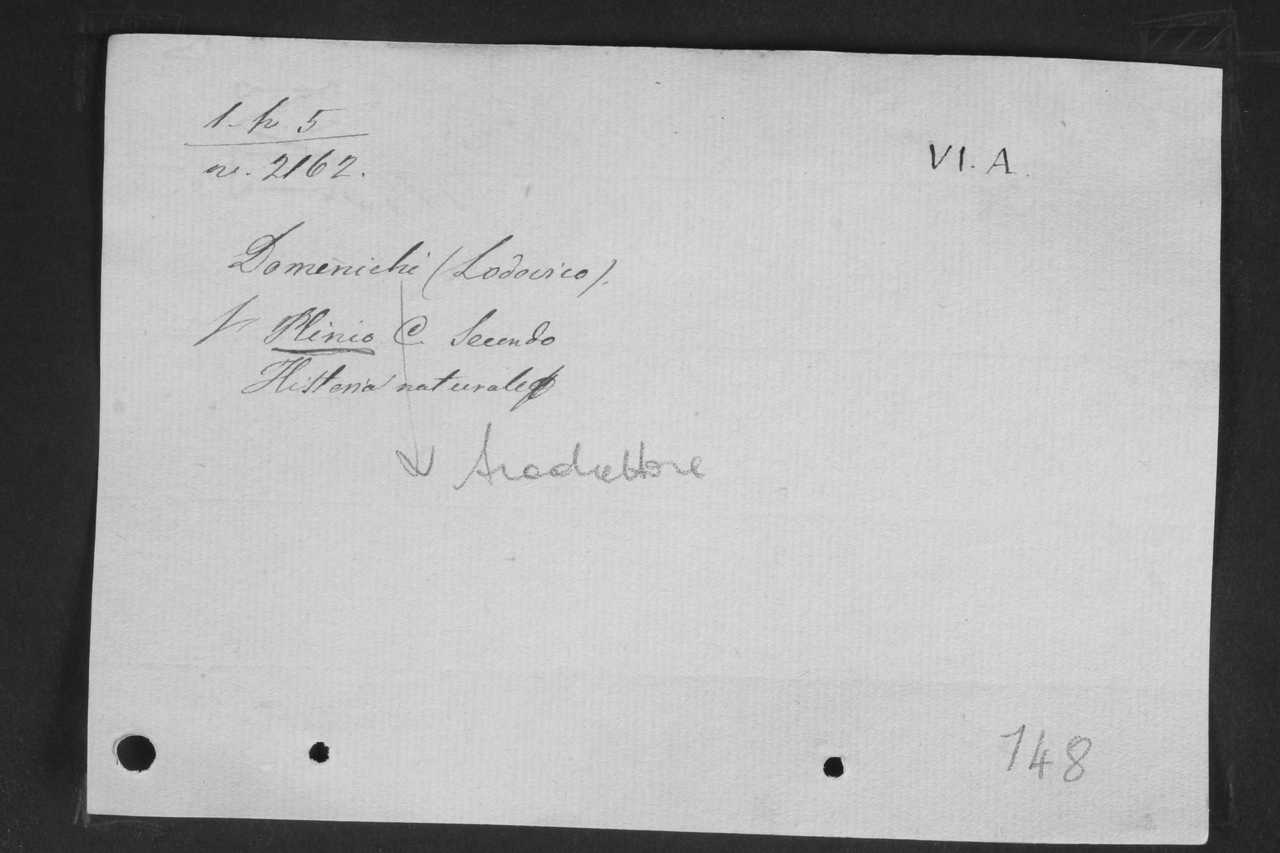 1-h 5
VI. A.
n. 2162.
Domenichi (Lodovico).
Plinio C. Secondo
Historia naturale
traduttore
148